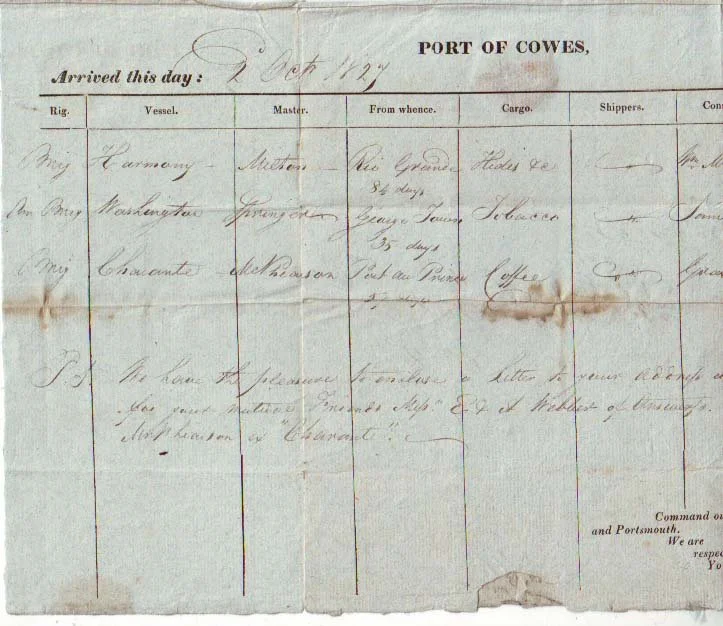 PORT OF COWES,
Arrived this day: 2 Oct 1827
Rig. Vessel. Master. From whence. Cargo. Shippers. Con
Brig Harmony - - Rio Grande Hides &c Wm M
84 days
Am Brig Washington Springer George Town Tobacco
35 days
Brig Charante McPhearson Port au Prince Coffee
days
P.S. We have the pleasure to enclose a letter to your address
your mutual Friends Messrs E & A of
McPhearson ex "Charante".
Command ou
and Portsmouth.
We are
respec
Yo